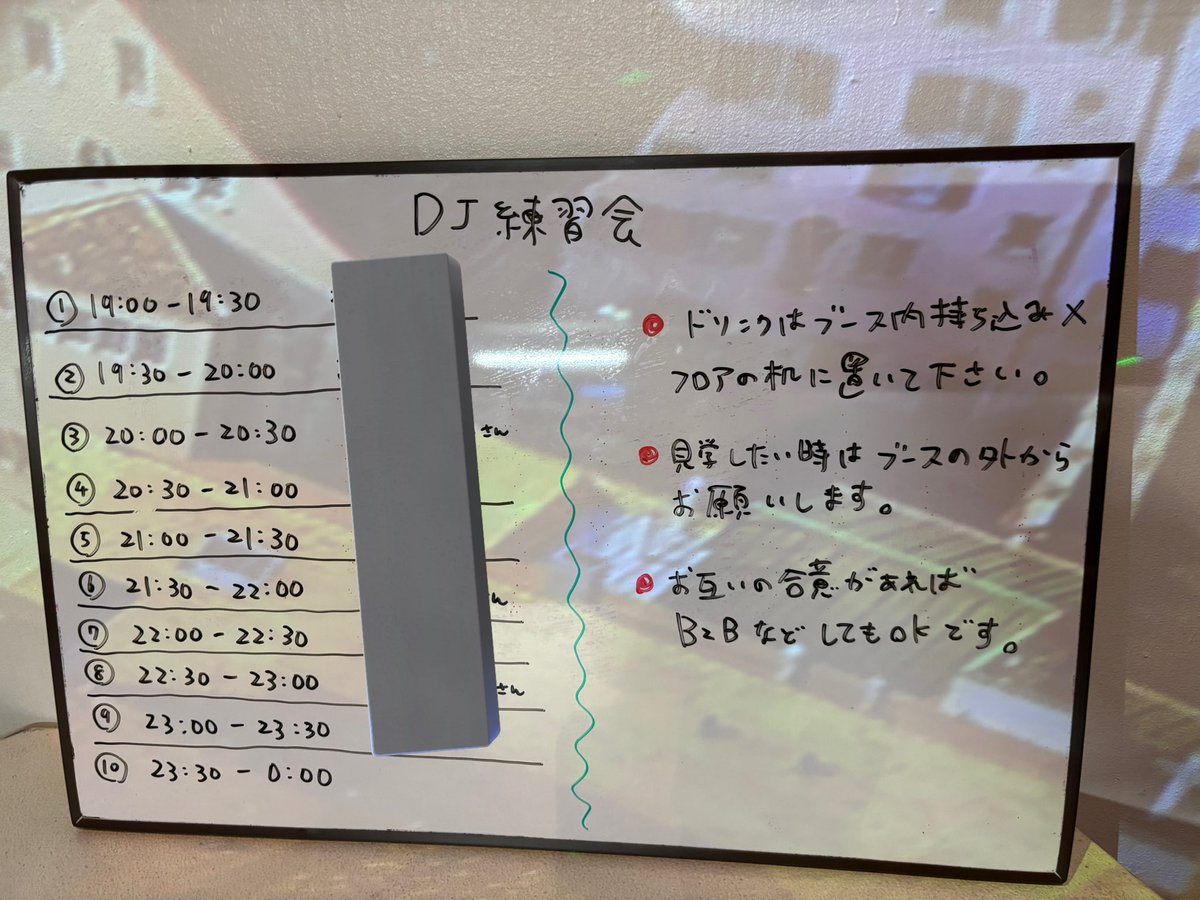 DJ練習会
① 19:00 - 19:30
② 19:30 - 20:00
③ 20:00 - 20:30 さん
④ 20:30 - 21:00
⑤ 21:00 - 21:30
⑥ 21:30 - 22:00 ん
⑦ 22:00 - 22:30
⑧ 22:30 - 23:00 さん
⑨ 23:00 - 23:30
⑩ 23:30 - 0:00
ドリンクはブース内持ち込み×
フロアの机に置いて下さい。
見学したい時はブースの外から
お願いします。
お互いの合意があれば
B2BなどしてもOKです。